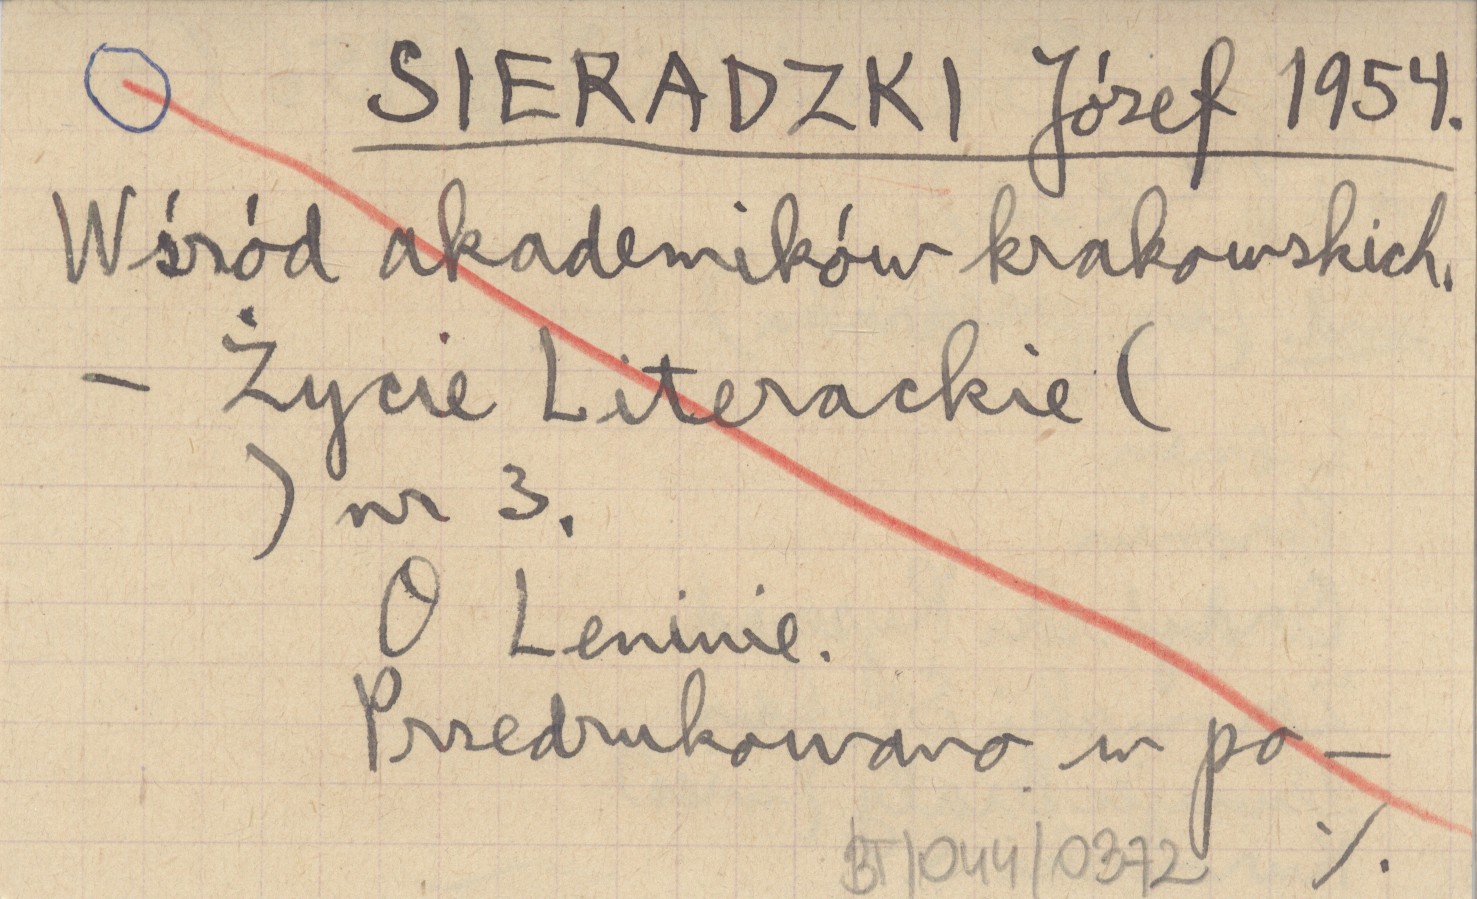 SIERADZKI Józef 1954.
Wśród akademików krakowskich.
- Życie Literackie (
) nr 3.
O Leninie.
Przedrukowano w po-
./.
BT/044/0372